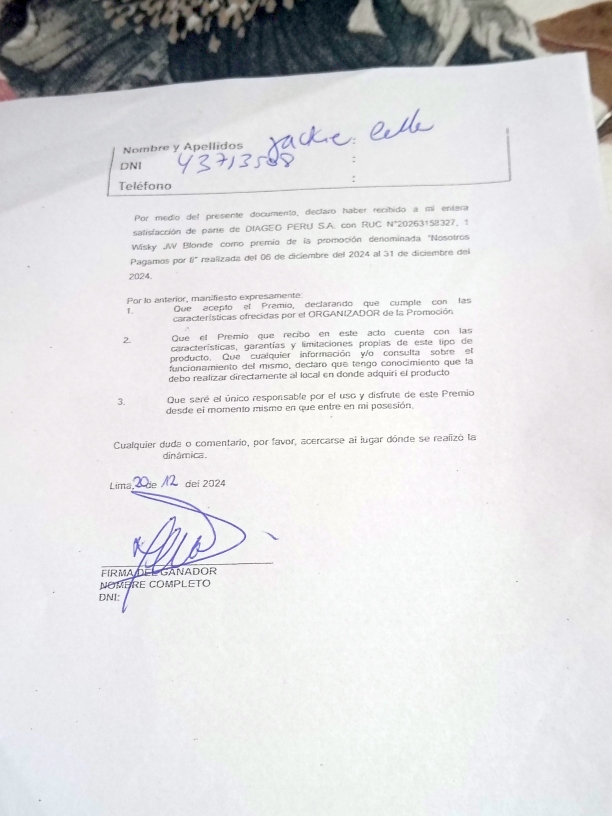 Nombre y Apellidos : Jackie Celle
DNI 43713508 :
Teléfono :
Por medio del presente documento, declaro haber recibido a mi entera
satisfacción de parte de DIAGEO PERU S.A. con RUC N°20263158327, 1
Wisky JW Blonde como premio de la promoción denominada "Nosotros
Pagamos por ti" realizada del 06 de diciembre del 2024 al 31 de diciembre del
2024.
Por lo anterior, manifiesto expresamente:
1. Que acepto el Premio, declarando que cumple con las
características ofrecidas por el ORGANIZADOR de la Promoción
2. Que el Premio que recibo en este acto cuenta con las
características, garantías y limitaciones propias de este tipo de
producto. Que cualquier información y/o consulta sobre el
funcionamiento del mismo, declaro que tengo conocimiento que la
debo realizar directamente al local en donde adquirí el producto
3. Que seré el único responsable por el uso y disfrute de este Premio
desde el momento mismo en que entre en mi posesión.
Cualquier duda o comentario, por favor, acercarse al lugar dónde se realizó la
dinámica.
Lima, 20 de 12 del 2024
FIRMA DEL GANADOR
NOMBRE COMPLETO
DNI: